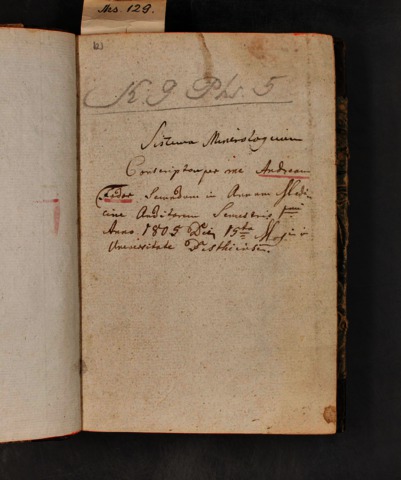 Ms. 129.
K. 9 Phs. 5
Sistema Minerologicum
Conscriptum per me Andream
Secundum in Annum Medi
cine Auditorem Semestris I
Anno 1805 Die 15ta
universitate Pesthiensi